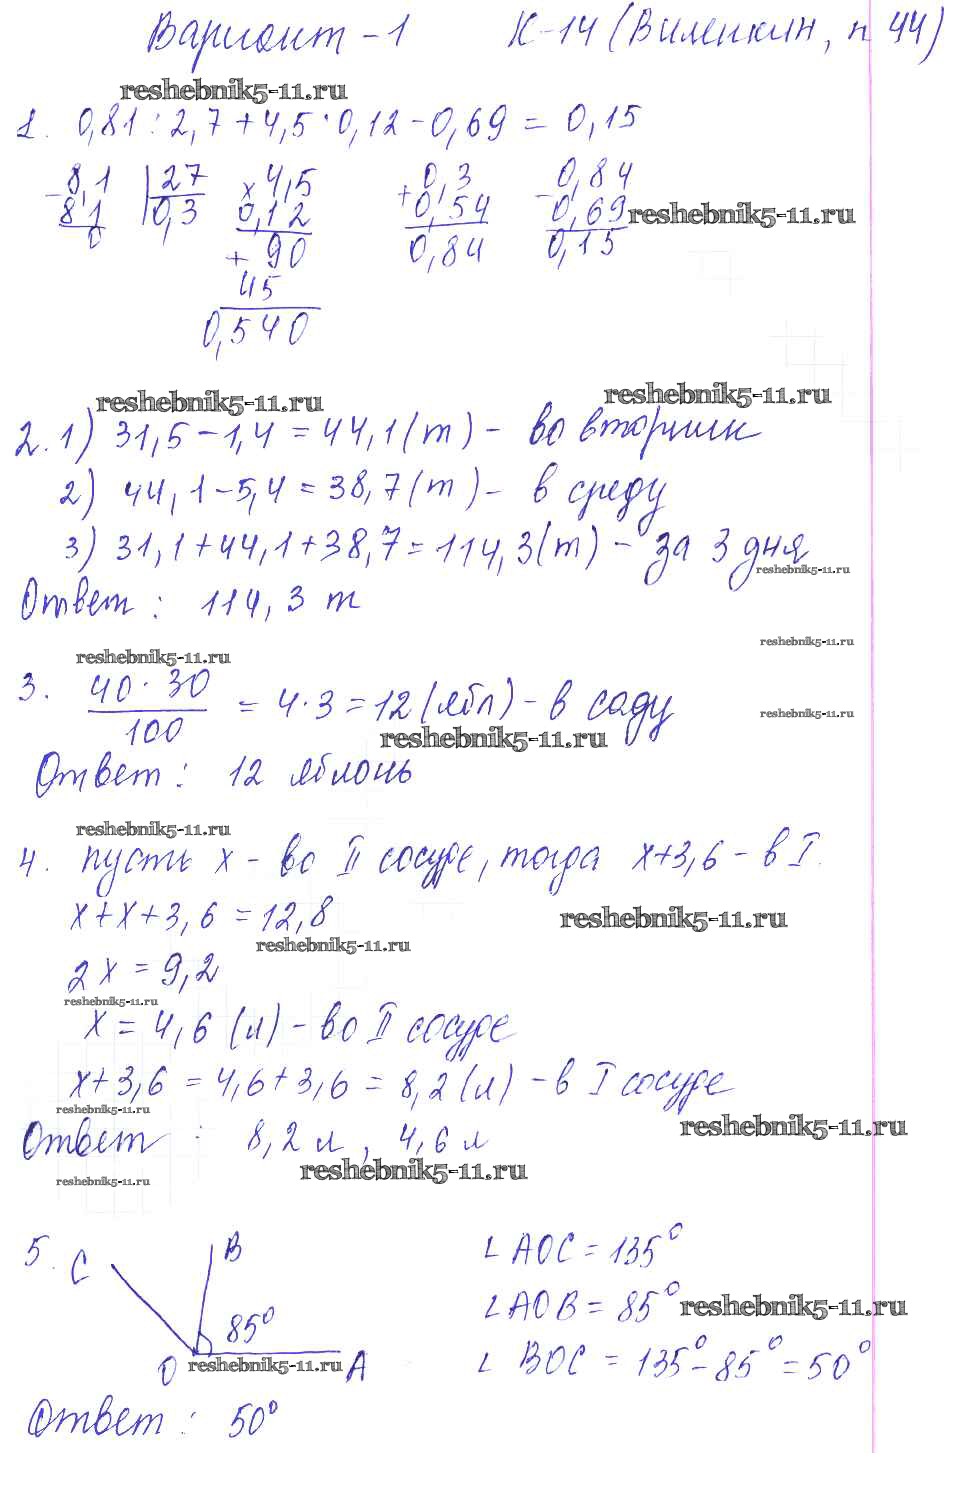 Вариант-1 К-14 (Виленкин, п 44)
reshebnik5-11.ru
1. 0,81 : 2,7 + 4,5 · 0,12 - 0,69 = 0,15
- 8,1 | 27 × 4,5 + 0,3 - 0,84
81 0,3 0,12 0,54 0,69 reshebnik5-11.ru
0 + 90 0,84 0,15
45
0,540
reshebnik5-11.ru reshebnik5-11.ru
2. 1) 31,5 - 1,4 = 44,1 (т) - во вторник
2) 44,1 - 5,4 = 38,7 (т) - в среду
3) 31,1 + 44,1 + 38,7 = 114,3 (т) - за 3 дня
reshebnik5-11.ru
Ответ : 114,3 т
reshebnik5-11.ru
reshebnik5-11.ru
3. 40 · 30
100
= 4 · 3 = 12 (ябл) - в саду
reshebnik5-11.ru
reshebnik5-11.ru
Ответ : 12 яблонь
reshebnik5-11.ru
4. пусть x - во II сосуде, тогда x+3,6 - в I.
x + x + 3,6 = 12,8
reshebnik5-11.ru
reshebnik5-11.ru
2x = 9,2
reshebnik5-11.ru
x = 4,6 (л) - во II сосуде
x + 3,6 = 4,6 + 3,6 = 8,2 (л) - в I сосуде
reshebnik5-11.ru
reshebnik5-11.ru
Ответ : 8,2 л, 4,6 л
reshebnik5-11.ru
reshebnik5-11.ru
5. C B ∠AOC = 135°
85° ∠AOB = 85° reshebnik5-11.ru
O reshebnik5-11.ru A ∠ BOC = 135° - 85° = 50°
Ответ : 50°